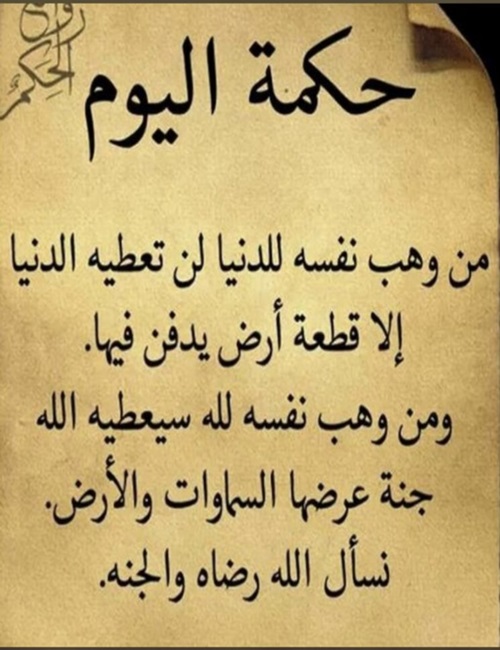 روائع
الحكم
حكمة اليوم
من وهب نفسه للدنيا لن تعطيه الدنيا
إلا قطعة أرض يدفن فيها.
ومن وهب نفسه لله سيعطيه الله
جنة عرضها السماوات والأرض.
نسأل الله رضاه والجنه.